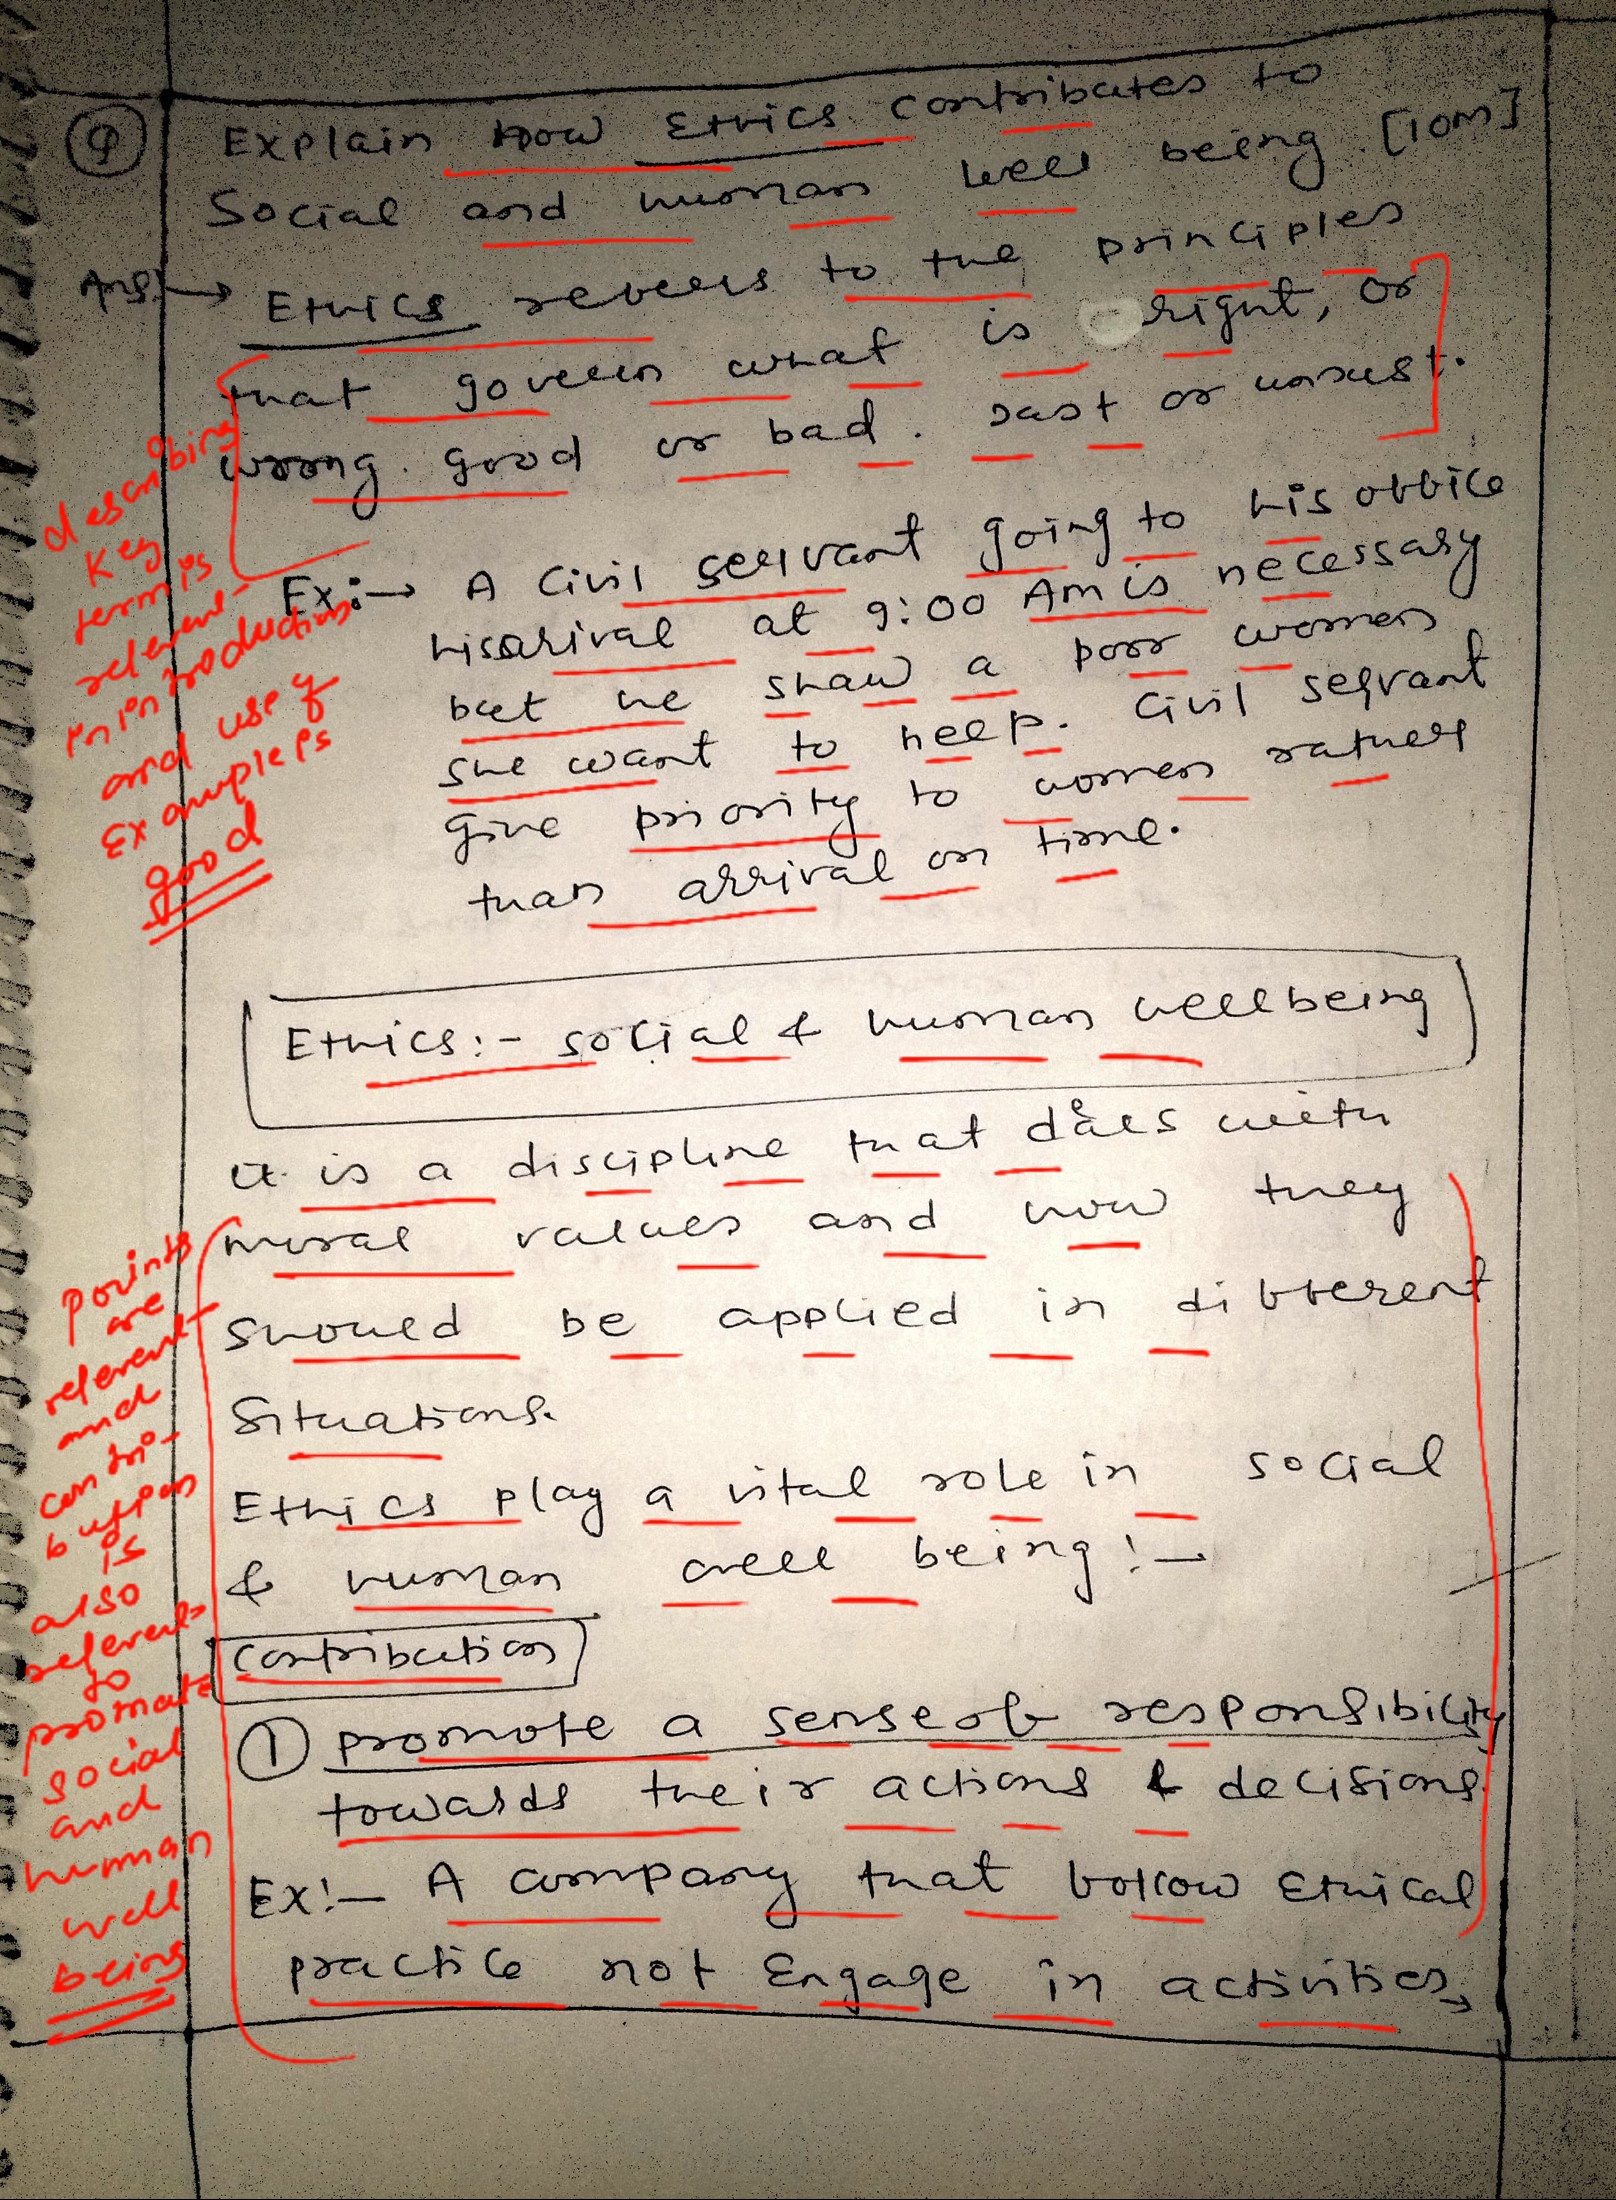 Q Explain How Ethics Contributes to
Social and human well being. [10M]
Ans:→ Ethics refers to the principles
that govern what is right, or
wrong. good or bad. Just or unjust.
Ex:→ A Civil servant going to his office
his arival at 9:00 Am is necessary
but he shaw a poor women
she want to help. Civil servant
give priority to women rather
than arrival on time.
describing
key
term is
relevent
in introduction
and use of
Example is
good
Ethics:- social & human wellbeing
it is a discipline that daels with
moral values and how they
should be applied in different
Situations.
Ethics play a vital role in social
& human well being:→
Contribution
① promote a sense of responsibility
towards their actions & decisions.
Ex:- A company that follow Ethical
practice not Engage in activities,
points
are
relevent
and
contri-
bution
is
also
relevent
to
promote
social
and
human
well
being